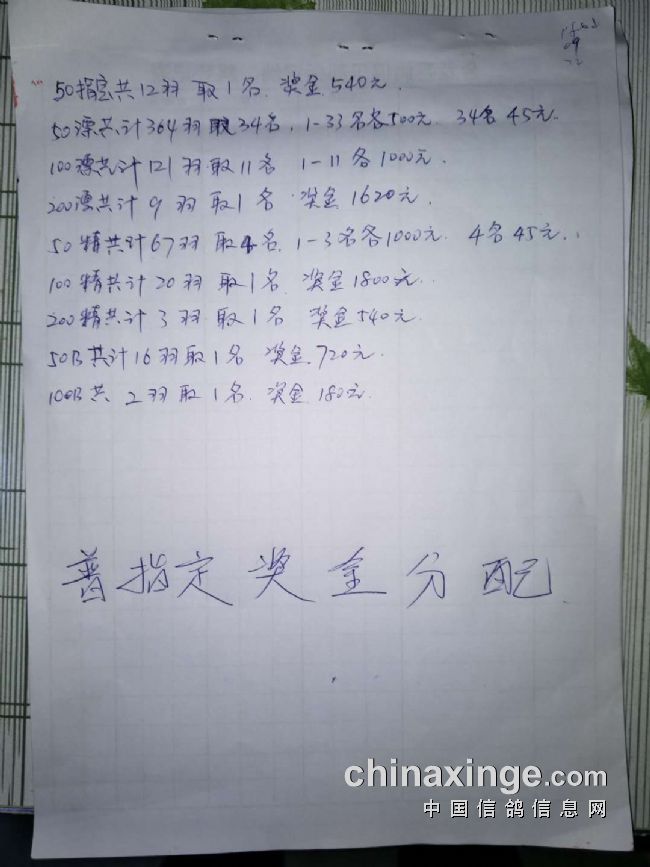 50指定共12羽 取1名. 奖金540元.
50漂共计364羽取34名. 1-33名各500元. 34名45元.
100漂共计121羽取11名 1-11各1000元.
200漂共计9羽取1名 奖金1620元.
50精共计67羽取4名. 1-3名各1000元. 4名45元..
100精共计20羽取1名. 奖金1800元.
200精共计3羽.取1名 奖金540元.
50B共计16羽取1名 奖金720元.
100B共 2羽取1名. 奖金180元.
普指定奖金分配
chinaxinge.com
中国信鸽信息网